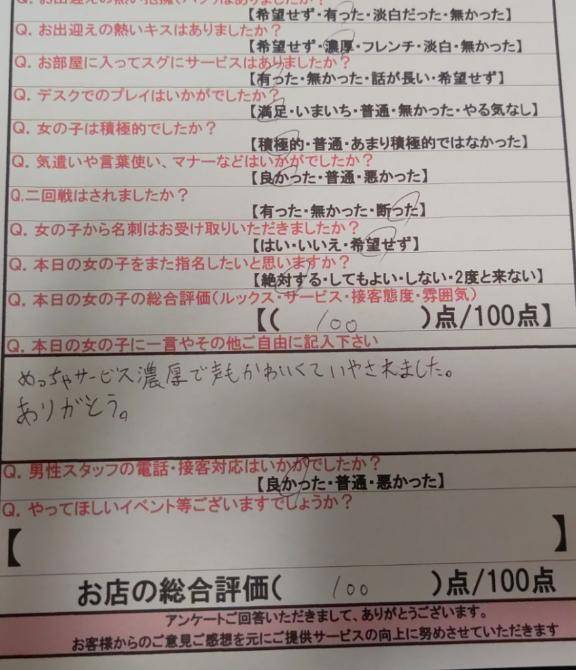 Q. お出迎えの熱い抱擁はありましたか？
【希望せず・有った・淡白だった・無かった】
Q. お出迎えの熱いキスはありましたか？
【希望せず・濃厚・フレンチ・淡白・無かった】
Q. お部屋に入ってスグにサービスはありましたか？
【有った・無かった・話が長い・希望せず】
Q. デスクでのプレイはいかがでしたか？
【満足・いまいち・普通・無かった・やる気なし】
Q. 女の子は積極的でしたか？
【積極的・普通・あまり積極的ではなかった】
Q. 気遣いや言葉使い、マナーなどはいかがでしたか？
【良かった・普通・悪かった】
Q.二回戦はされましたか？
【有った・無かった・断った】
Q. 女の子から名刺はお受け取りいただきましたか？
【はい・いいえ・希望せず】
Q. 本日の女の子をまた指名したいと思いますか？
【絶対する・してもよい・しない・2度と来ない】
Q. 本日の女の子の総合評価(ルックス・サービス・接客態度・雰囲気)
【( 100 )点/100点】
Q. 本日の女の子に一言やその他ご自由に記入下さい
めっちゃサービス濃厚で声もかわいくていやされました。
ありがとう。
Q. 男性スタッフの電話・接客対応はいかがでしたか？
【良かった・普通・悪かった】
Q. やってほしいイベント等ございますでしょうか？
【 】
お店の総合評価( 100 )点/100点
アンケートご回答いただきまして、ありがとうございます。
お客様からのご意見ご感想を元にご提供サービスの向上に努めさせていただきます